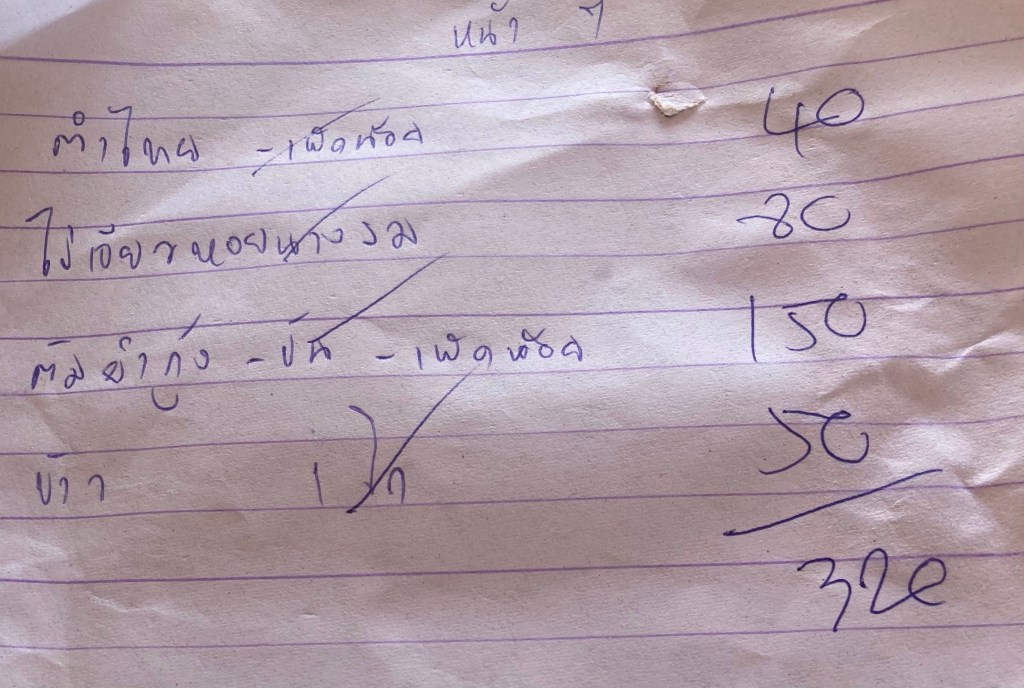 หน้า 7
ตำไทย - เผ็ดน้อย 40
ไข่เจียวหอยนางรม 80
ต้มยำกุ้ง - ข้น - เผ็ดน้อย 150
ข้าว 1 50
320